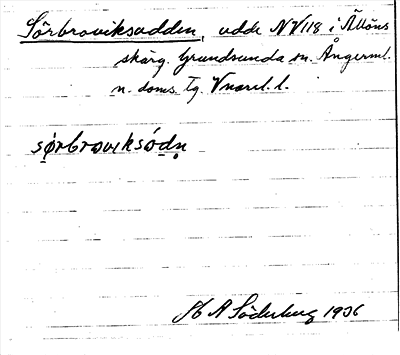 Sörbroviksudden, udde NV 118 i Ållöns
skärg. Grundsunda sn. Ångerml.
n. doms. Tg. V
sǿrbrovıksódṇ
H A Söderberg 1906